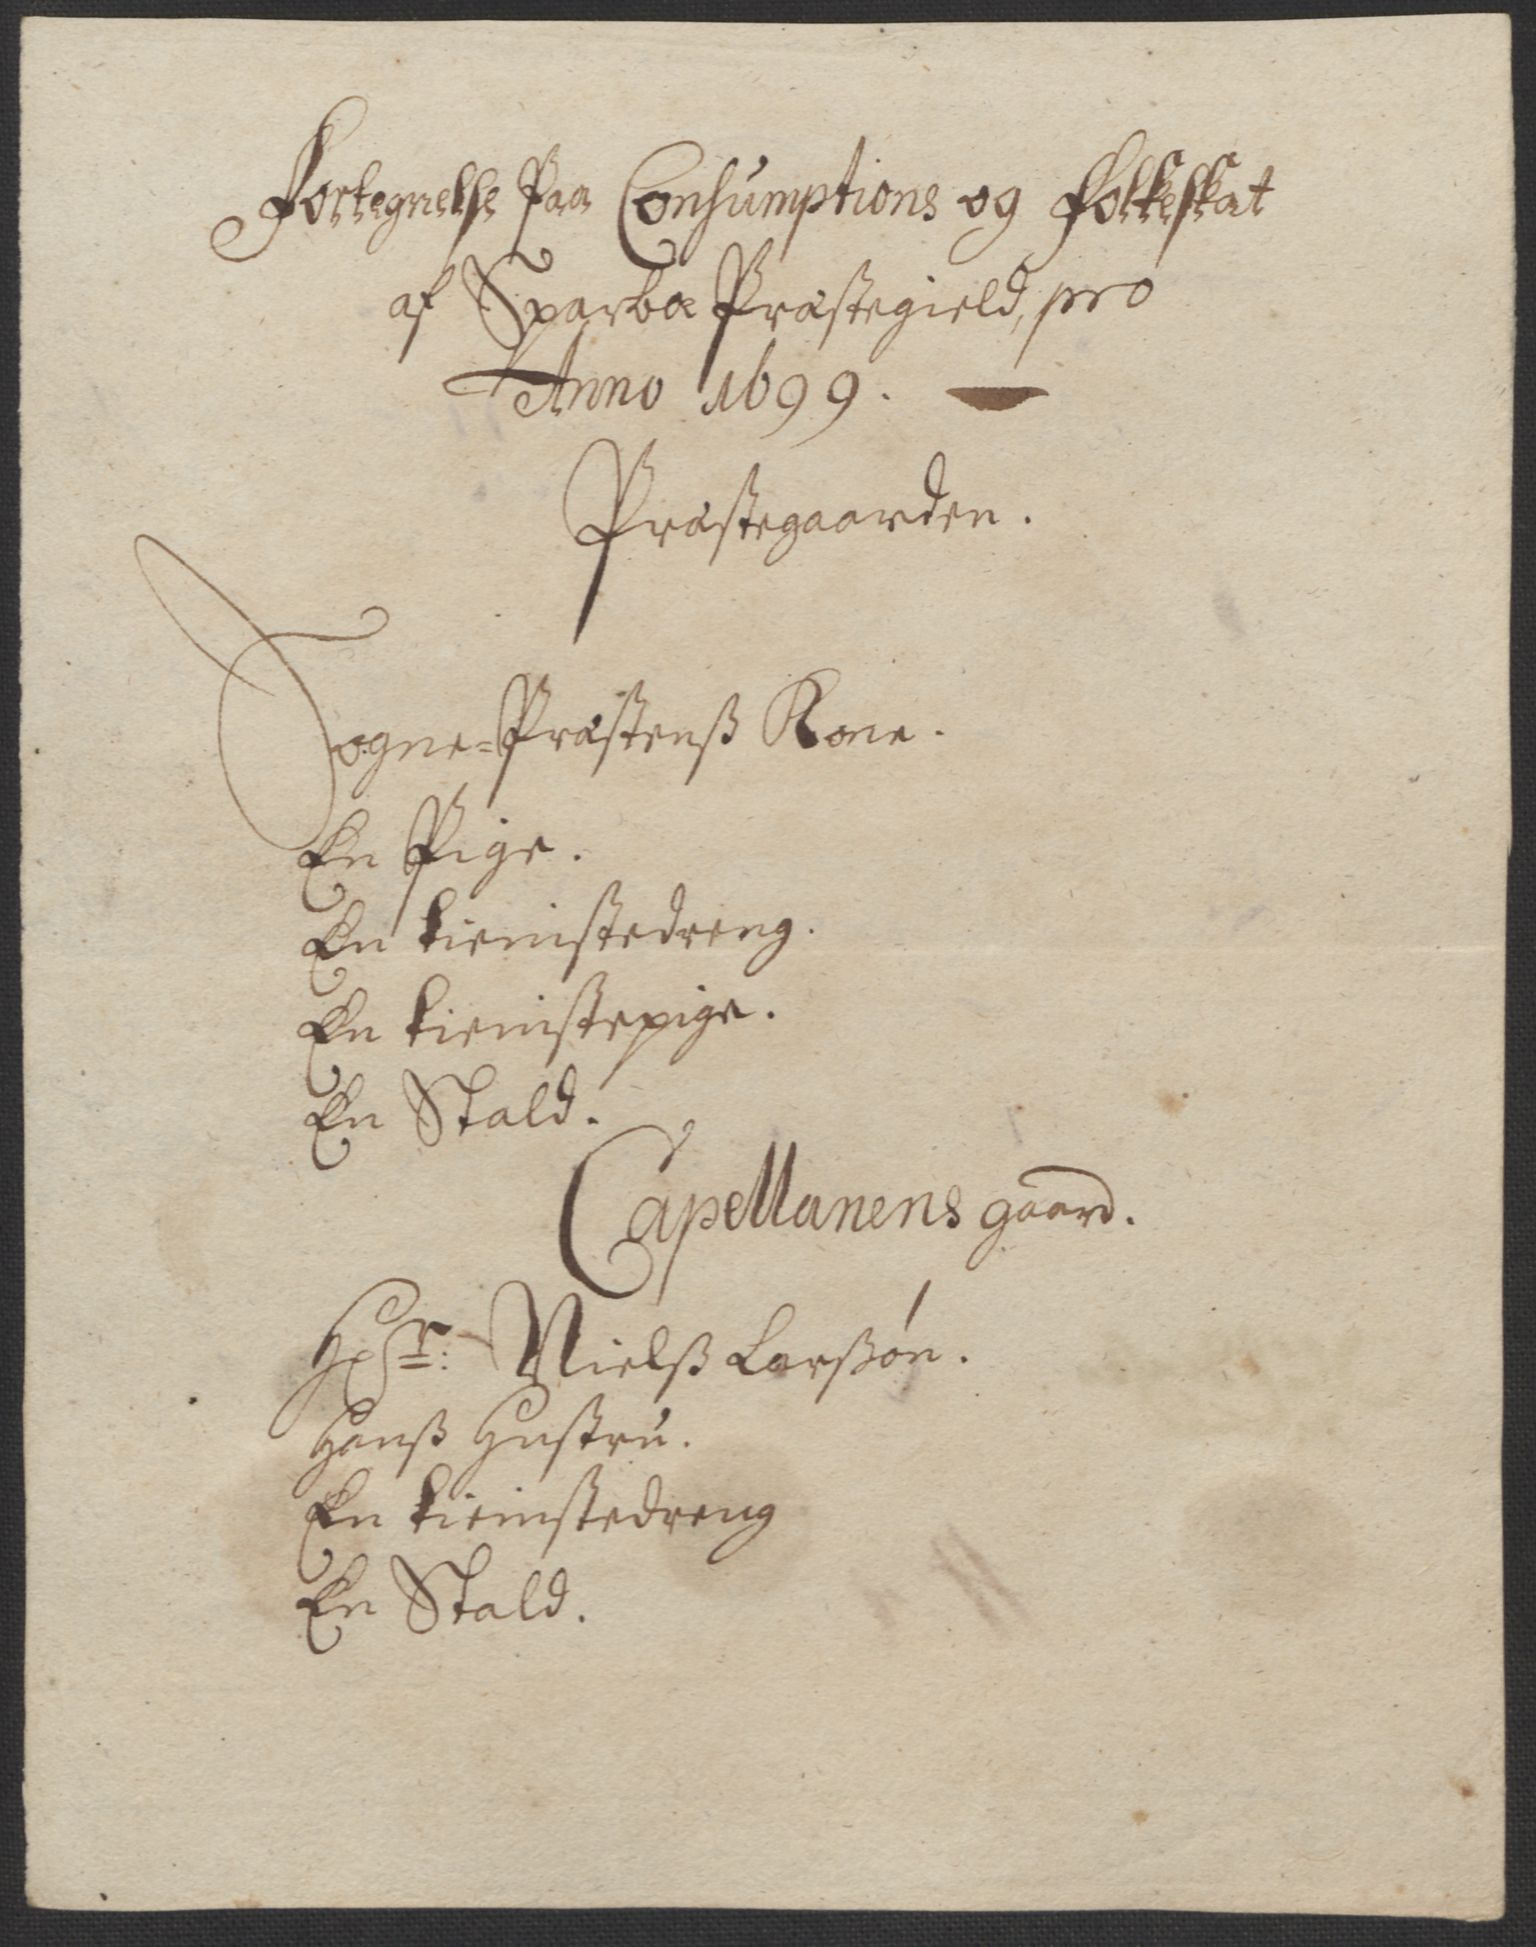 Fortegnelse Paa Consumptions og Folkeskat
af Sparboe Præstegield, pro
Anno 1699.
Præstegaarden.
Sogne=Præstenß Kone.
En Pige.
En tienistedreng.
En tienistepige.
En Stald.
Capellanens gaard.
Hr: Nielß Larßøn.
Hanß Hustru.
En tienistedreng
En Stald.